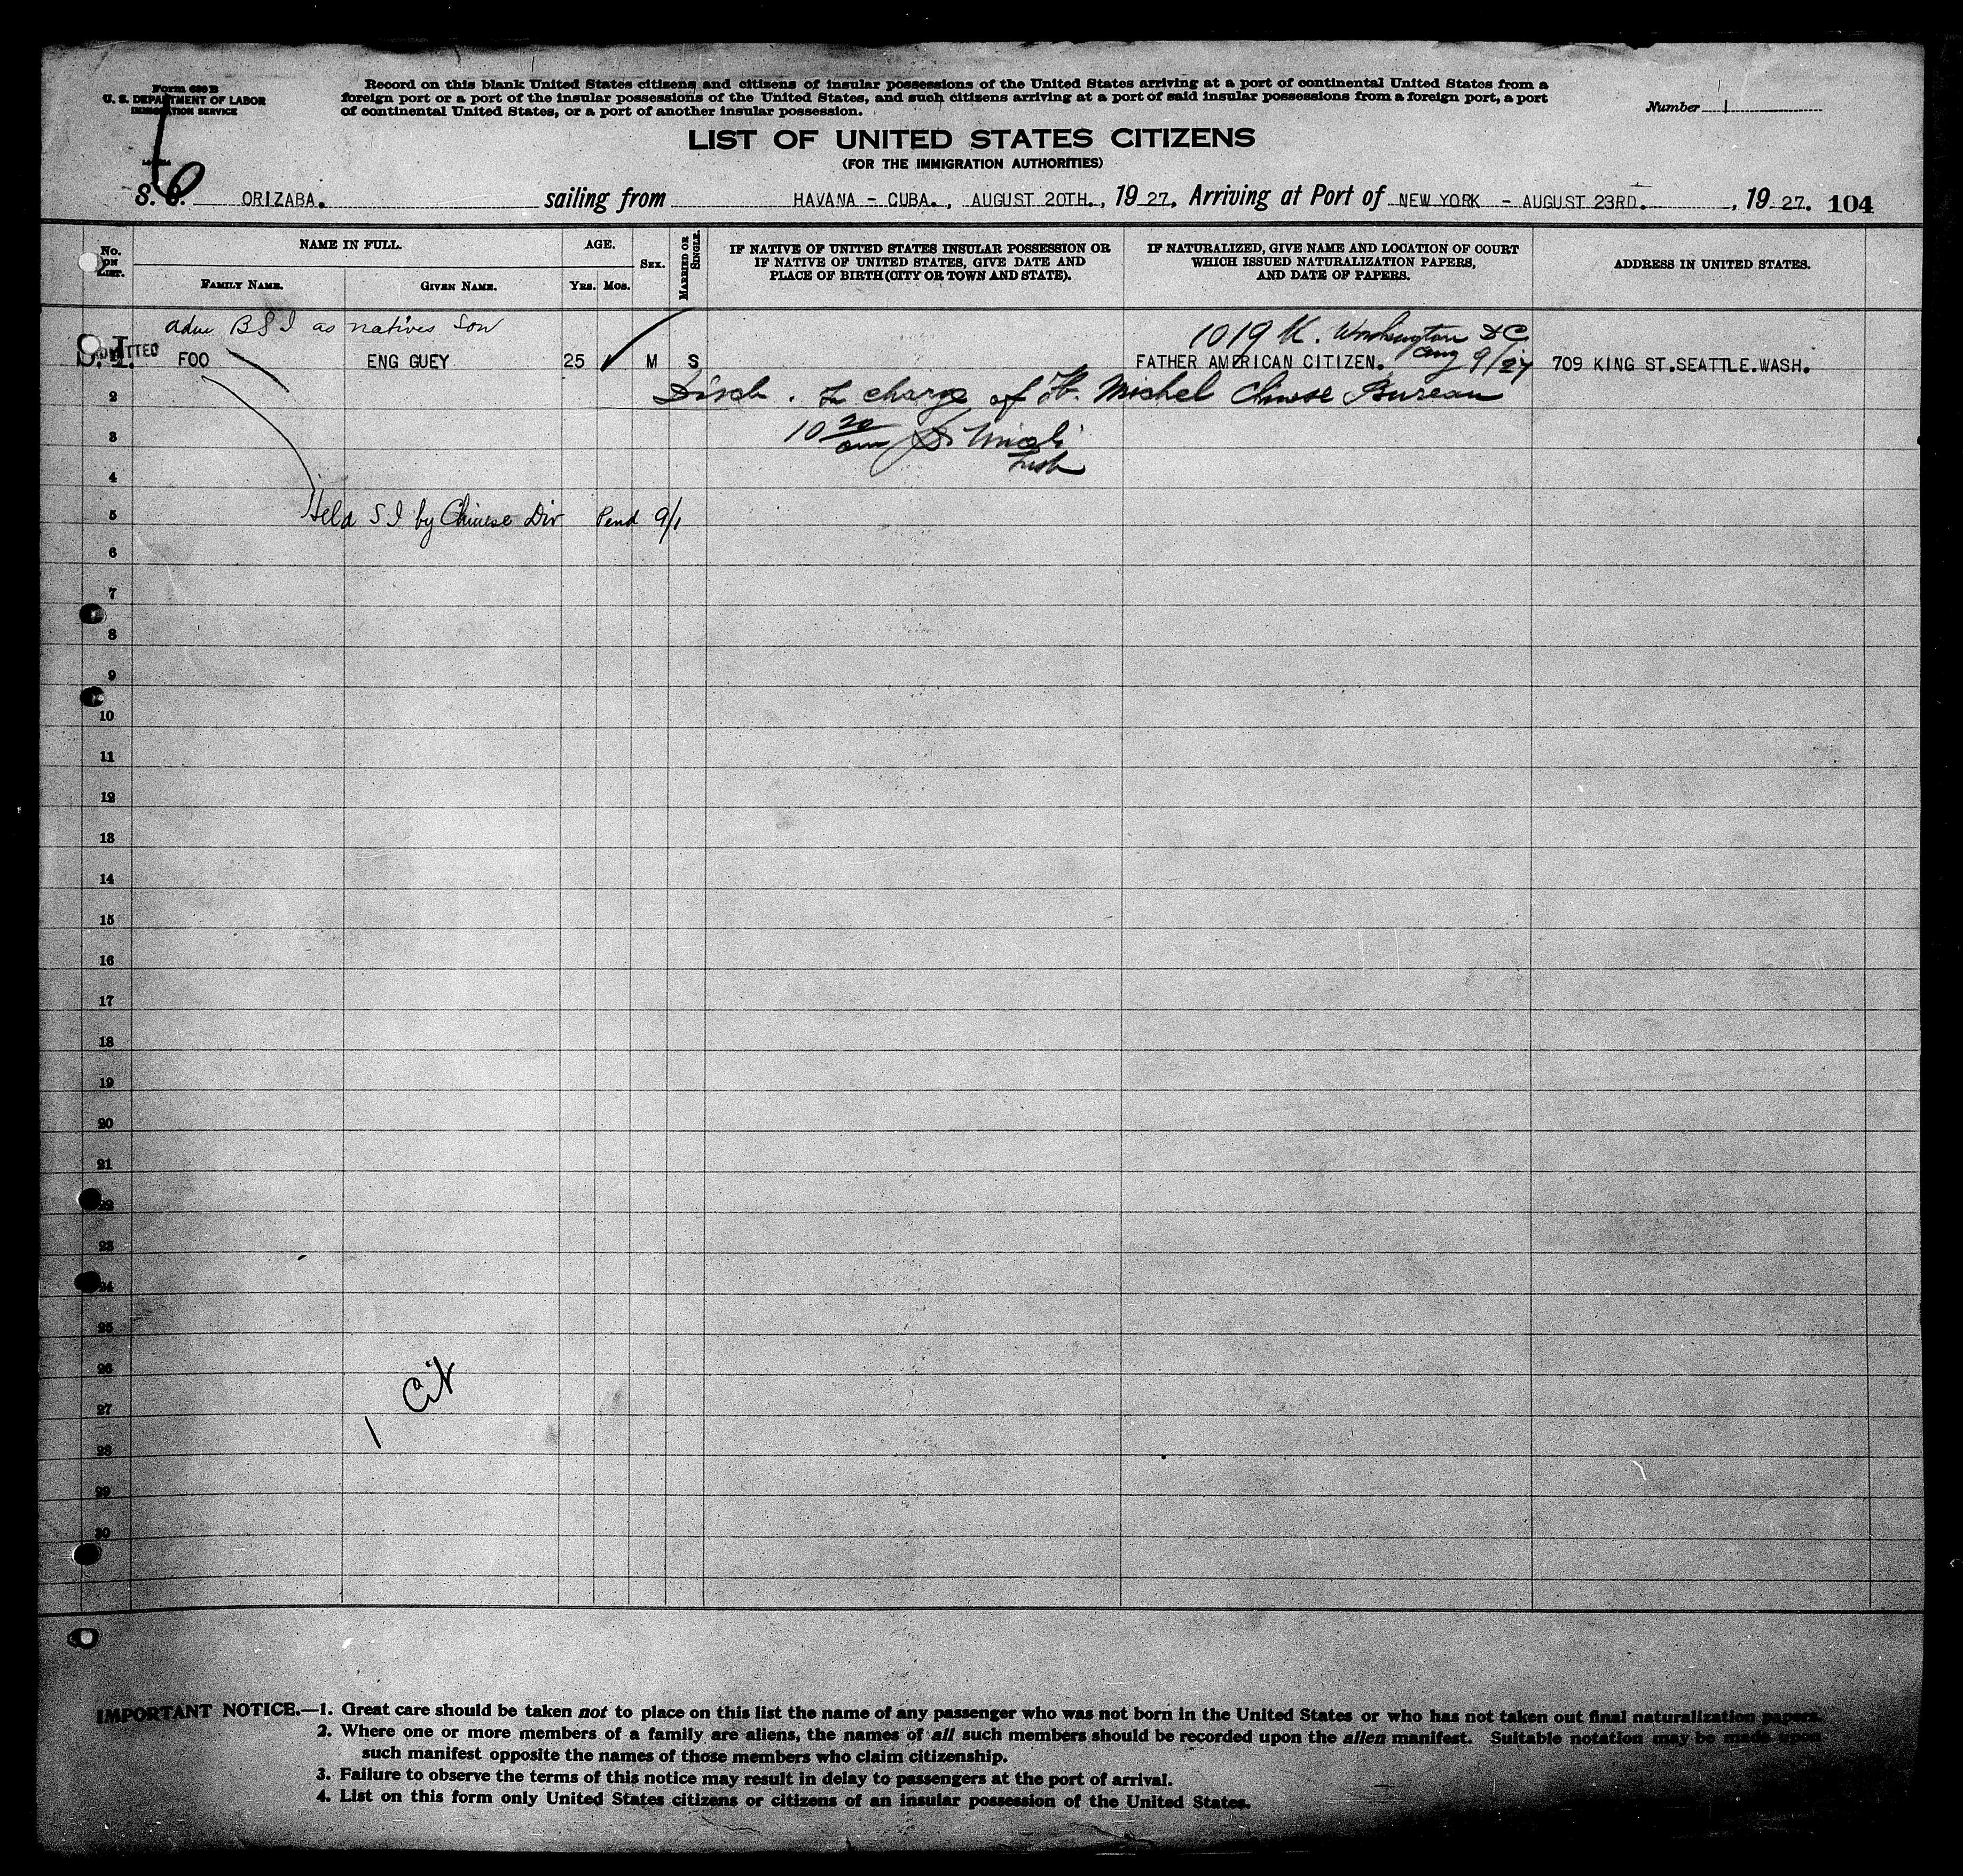 Form 630 B
U. S. DEPARTMENT OF LABOR
IMMIGRATION SERVICE
Record on this blank United States citizens and citizens of insular possessions of the United States arriving at a port of continental United States from a
foreign port or a port of the insular possessions of the United States, and such citizens arriving at a port of said insular possessions from a foreign port, a port
of continental United States, or a port of another insular possession.
Number 1
LIST OF UNITED STATES CITIZENS
(FOR THE IMMIGRATION AUTHORITIES)
S. S. ORIZABA. sailing from HAVANA - CUBA., AUGUST 20TH., 1927, Arriving at Port of NEW YORK - AUGUST 23RD. , 1927. 104
No. ON LIST.
NAME IN FULL.
FAMILY NAME.
GIVEN NAME.
AGE.
YRS. MOS.
SEX.
MARRIED OR SINGLE.
IF NATIVE OF UNITED STATES INSULAR POSSESSION OR
IF NATIVE OF UNITED STATES, GIVE DATE AND
PLACE OF BIRTH (CITY OR TOWN AND STATE).
IF NATURALIZED, GIVE NAME AND LOCATION OF COURT
WHICH ISSUED NATURALIZATION PAPERS,
AND DATE OF PAPERS.
ADDRESS IN UNITED STATES.
BSI as natives son
1019 K. Washington DC
Aug 9/27
S.I. ADMITTED FOO ENG GUEY 25 M S FATHER AMERICAN CITIZEN. 709 KING ST.SEATTLE.WASH.
2 Disch. In charge of Michel Chinese Bureau
3 10 20 am
4
5 Held S I by Chinese Div Pend 9/1
6
7
8
9
10
11
12
13
14
15
16
17
18
19
20
21
22
23
24
25
26
27
28
29
30
1 Cit
IMPORTANT NOTICE.—1. Great care should be taken not to place on this list the name of any passenger who was not born in the United States or who has not taken out final naturalization papers.
2. Where one or more members of a family are aliens, the names of all such members should be recorded upon the alien manifest. Suitable notation may be made upon
such manifest opposite the names of those members who claim citizenship.
3. Failure to observe the terms of this notice may result in delay to passengers at the port of arrival.
4. List on this form only United States citizens or citizens of an insular possession of the United States.